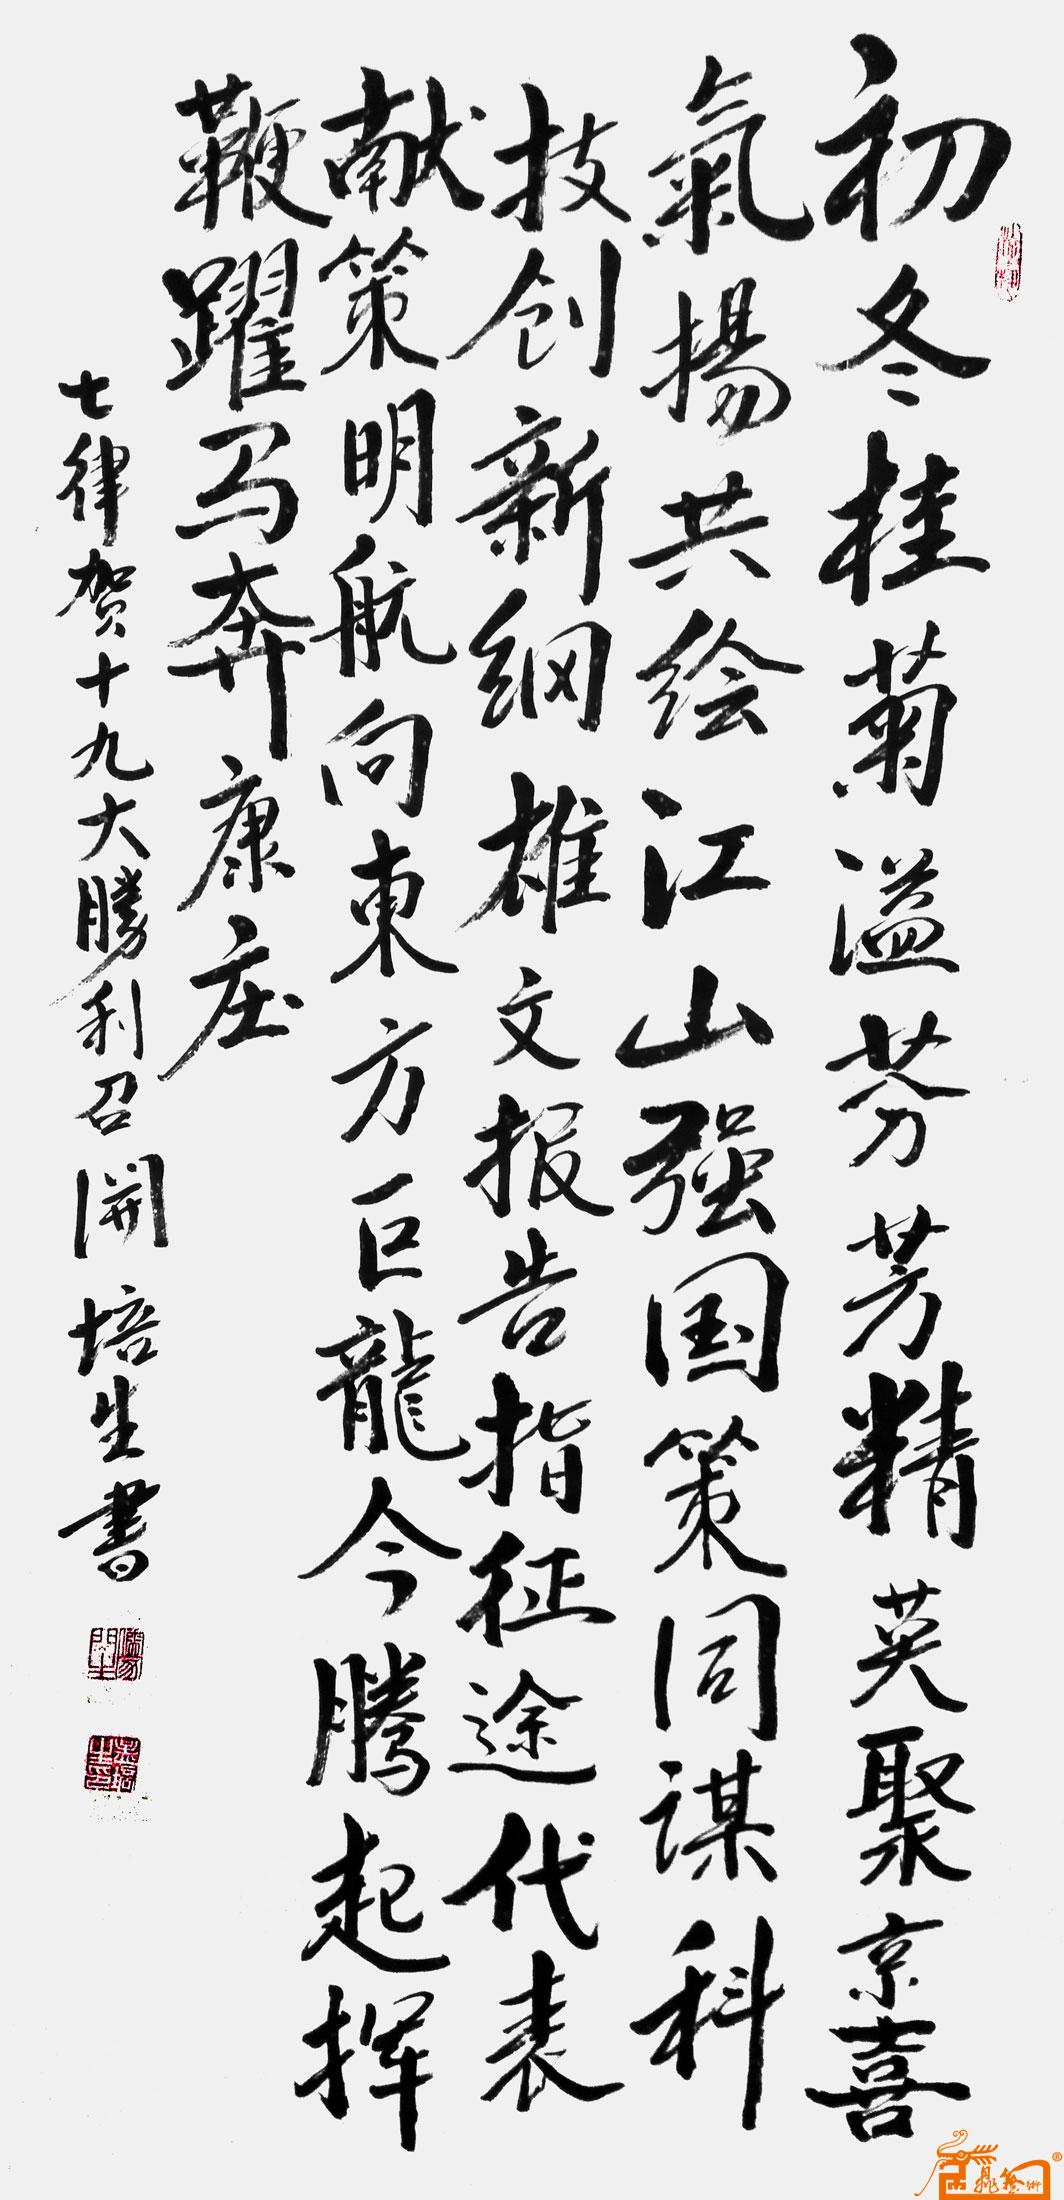 初冬桂菊溢芬芳精英聚京喜
氣揚共绘江山强国策同谋科
技创新纲雄文报告指征途代表
献策明航向東方巨龍今腾起挥
鞭躍马奔康庄
七律贺十九大勝利召開 培生書